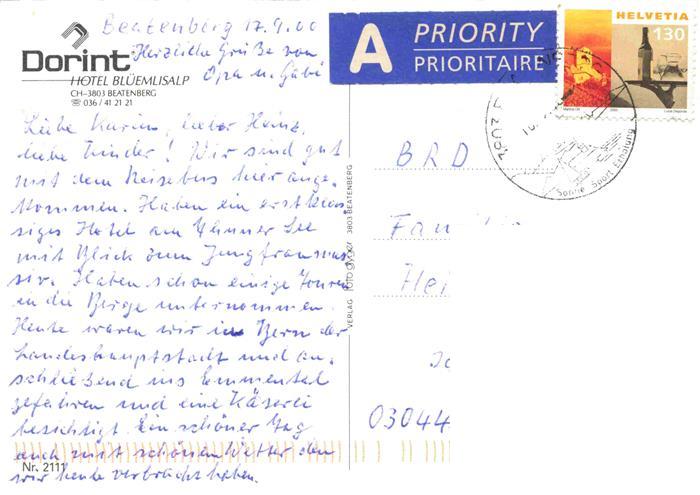 Beatenberg 17.9.00
Herzliche Grüße von
Opa u. Gabi
Dorint
HOTEL BLÜEMLISALP
CH-3803 BEATENBERG
☎ 036 / 41 21 21
Liebe Karin, lieber Heinz,
liebe Kinder! Wir sind gut
mit dem Reisebus hier ange-
kommen. Haben ein erstklas-
siges Hotel am Thuner See
mit Blick zum Jungfraumas-
siv. Haben schon einige Touren
in die Berge unternommen.
Heute waren wir in Bern der
Landeshauptstadt und an-
schließend ins Emmental
gefahren und eine Käserei
besichtigt. Ein schöner Tag
auch mit schönem Wetter den
wir heute verbracht haben.
Nr. 2111
3803 BEATENBERG
VERLAG FOTO
A PRIORITY
PRIORITAIRE
HELVETIA
130
Sonne Sport Erholung
BRD
Fam
Hei
03044